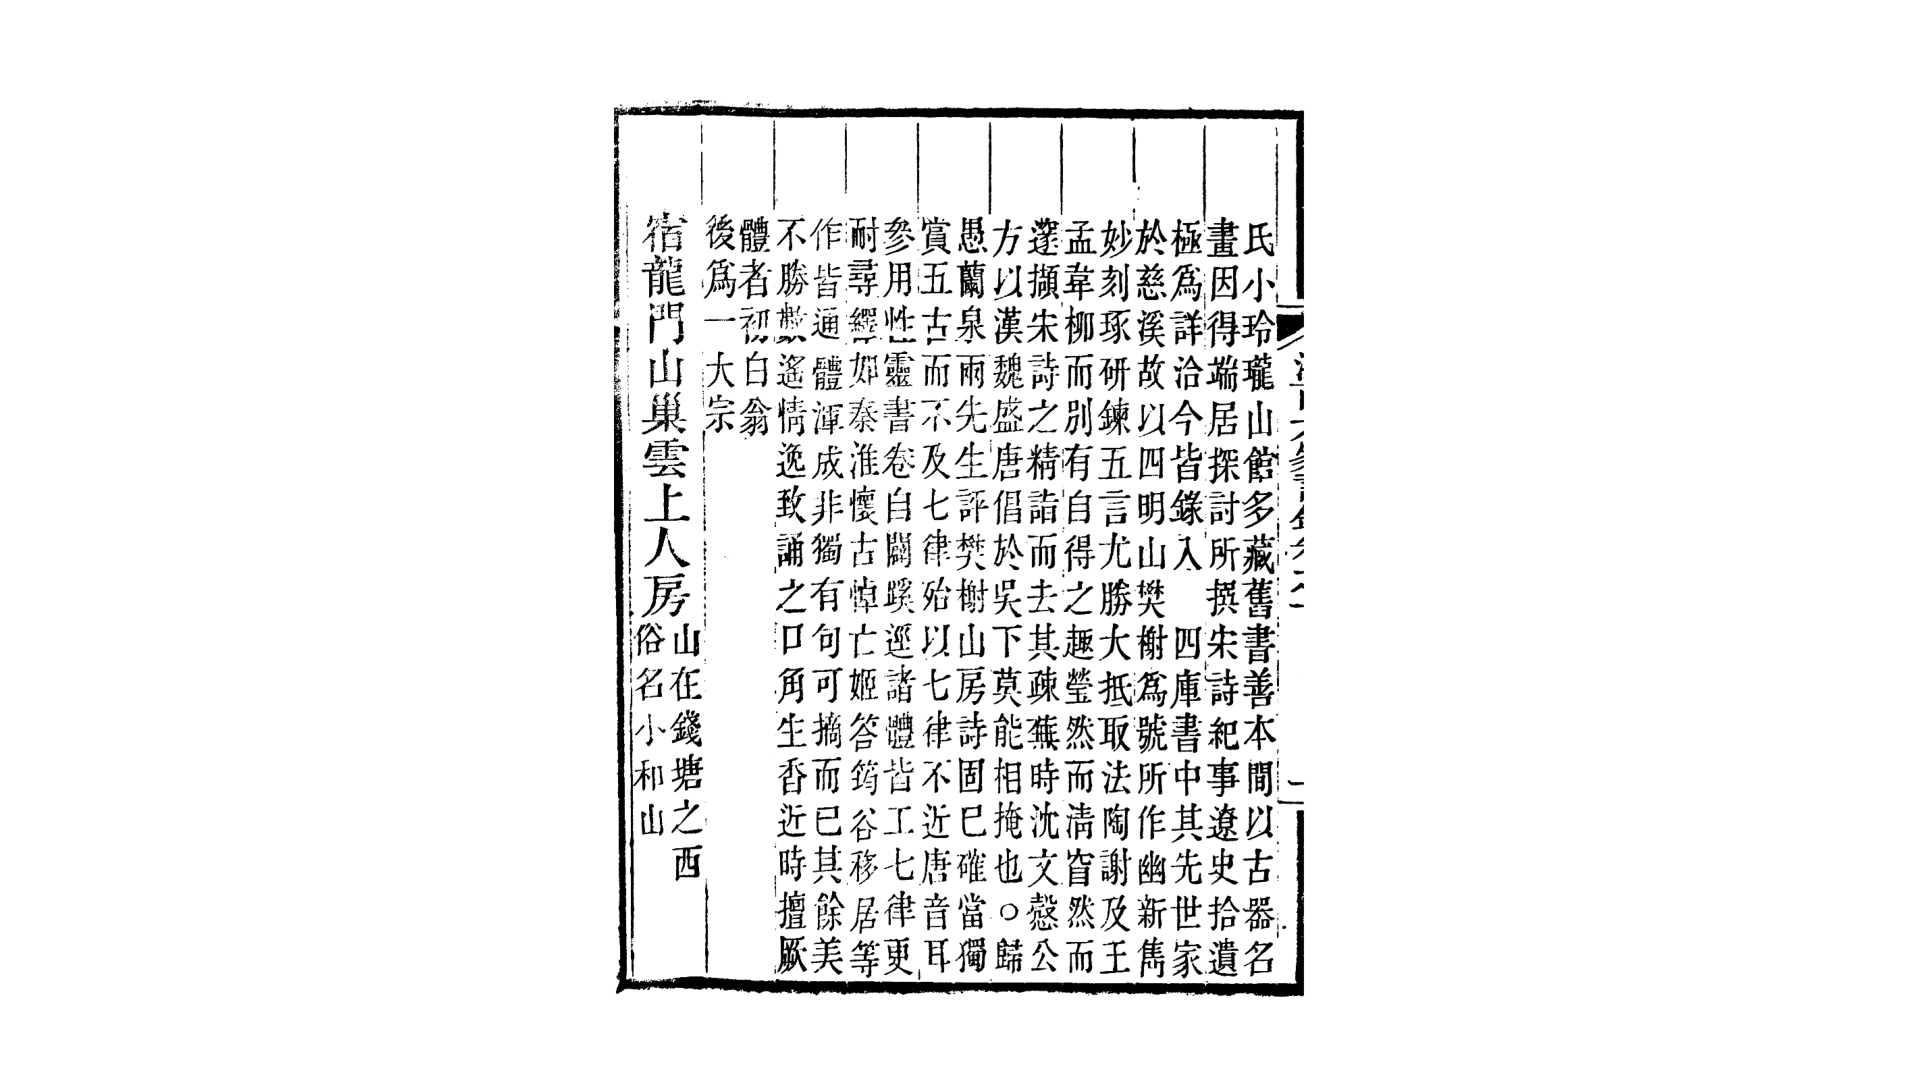 氏小玲瓏山館多藏舊書善本間以古器名
畫因得端居探討所撰宋詩紀事遼史拾遺
極為詳洽今皆錄入　四庫書中其先世家
於慈溪故以四明山樊榭為號所作幽新雋
妙刻琢研鍊五言尤勝大抵取法陶謝及王
孟韋柳而別有自得之趣瑩然而清窅然而
邃擷宋詩之精詣而去其疎蕪時沈文慤公
方以漢魏盛唐倡於吳下莫能相掩也○歸
愚蘭泉兩先生評樊榭山房詩固已確當獨
賞五古而不及七律殆以七律不近唐音耳
參用性靈書卷自闢蹊逕諸體皆工七律更
耐尋繹如秦淮懷古悼亡姬答筠谷移居等
作皆通體渾成非獨有句可摘而已其餘美
不勝數遙情逸致誦之口角生香近時擅厥
體者初白翁
後為一大宗
宿龍門山巢雲上人房
山在錢塘之西
俗名小和山